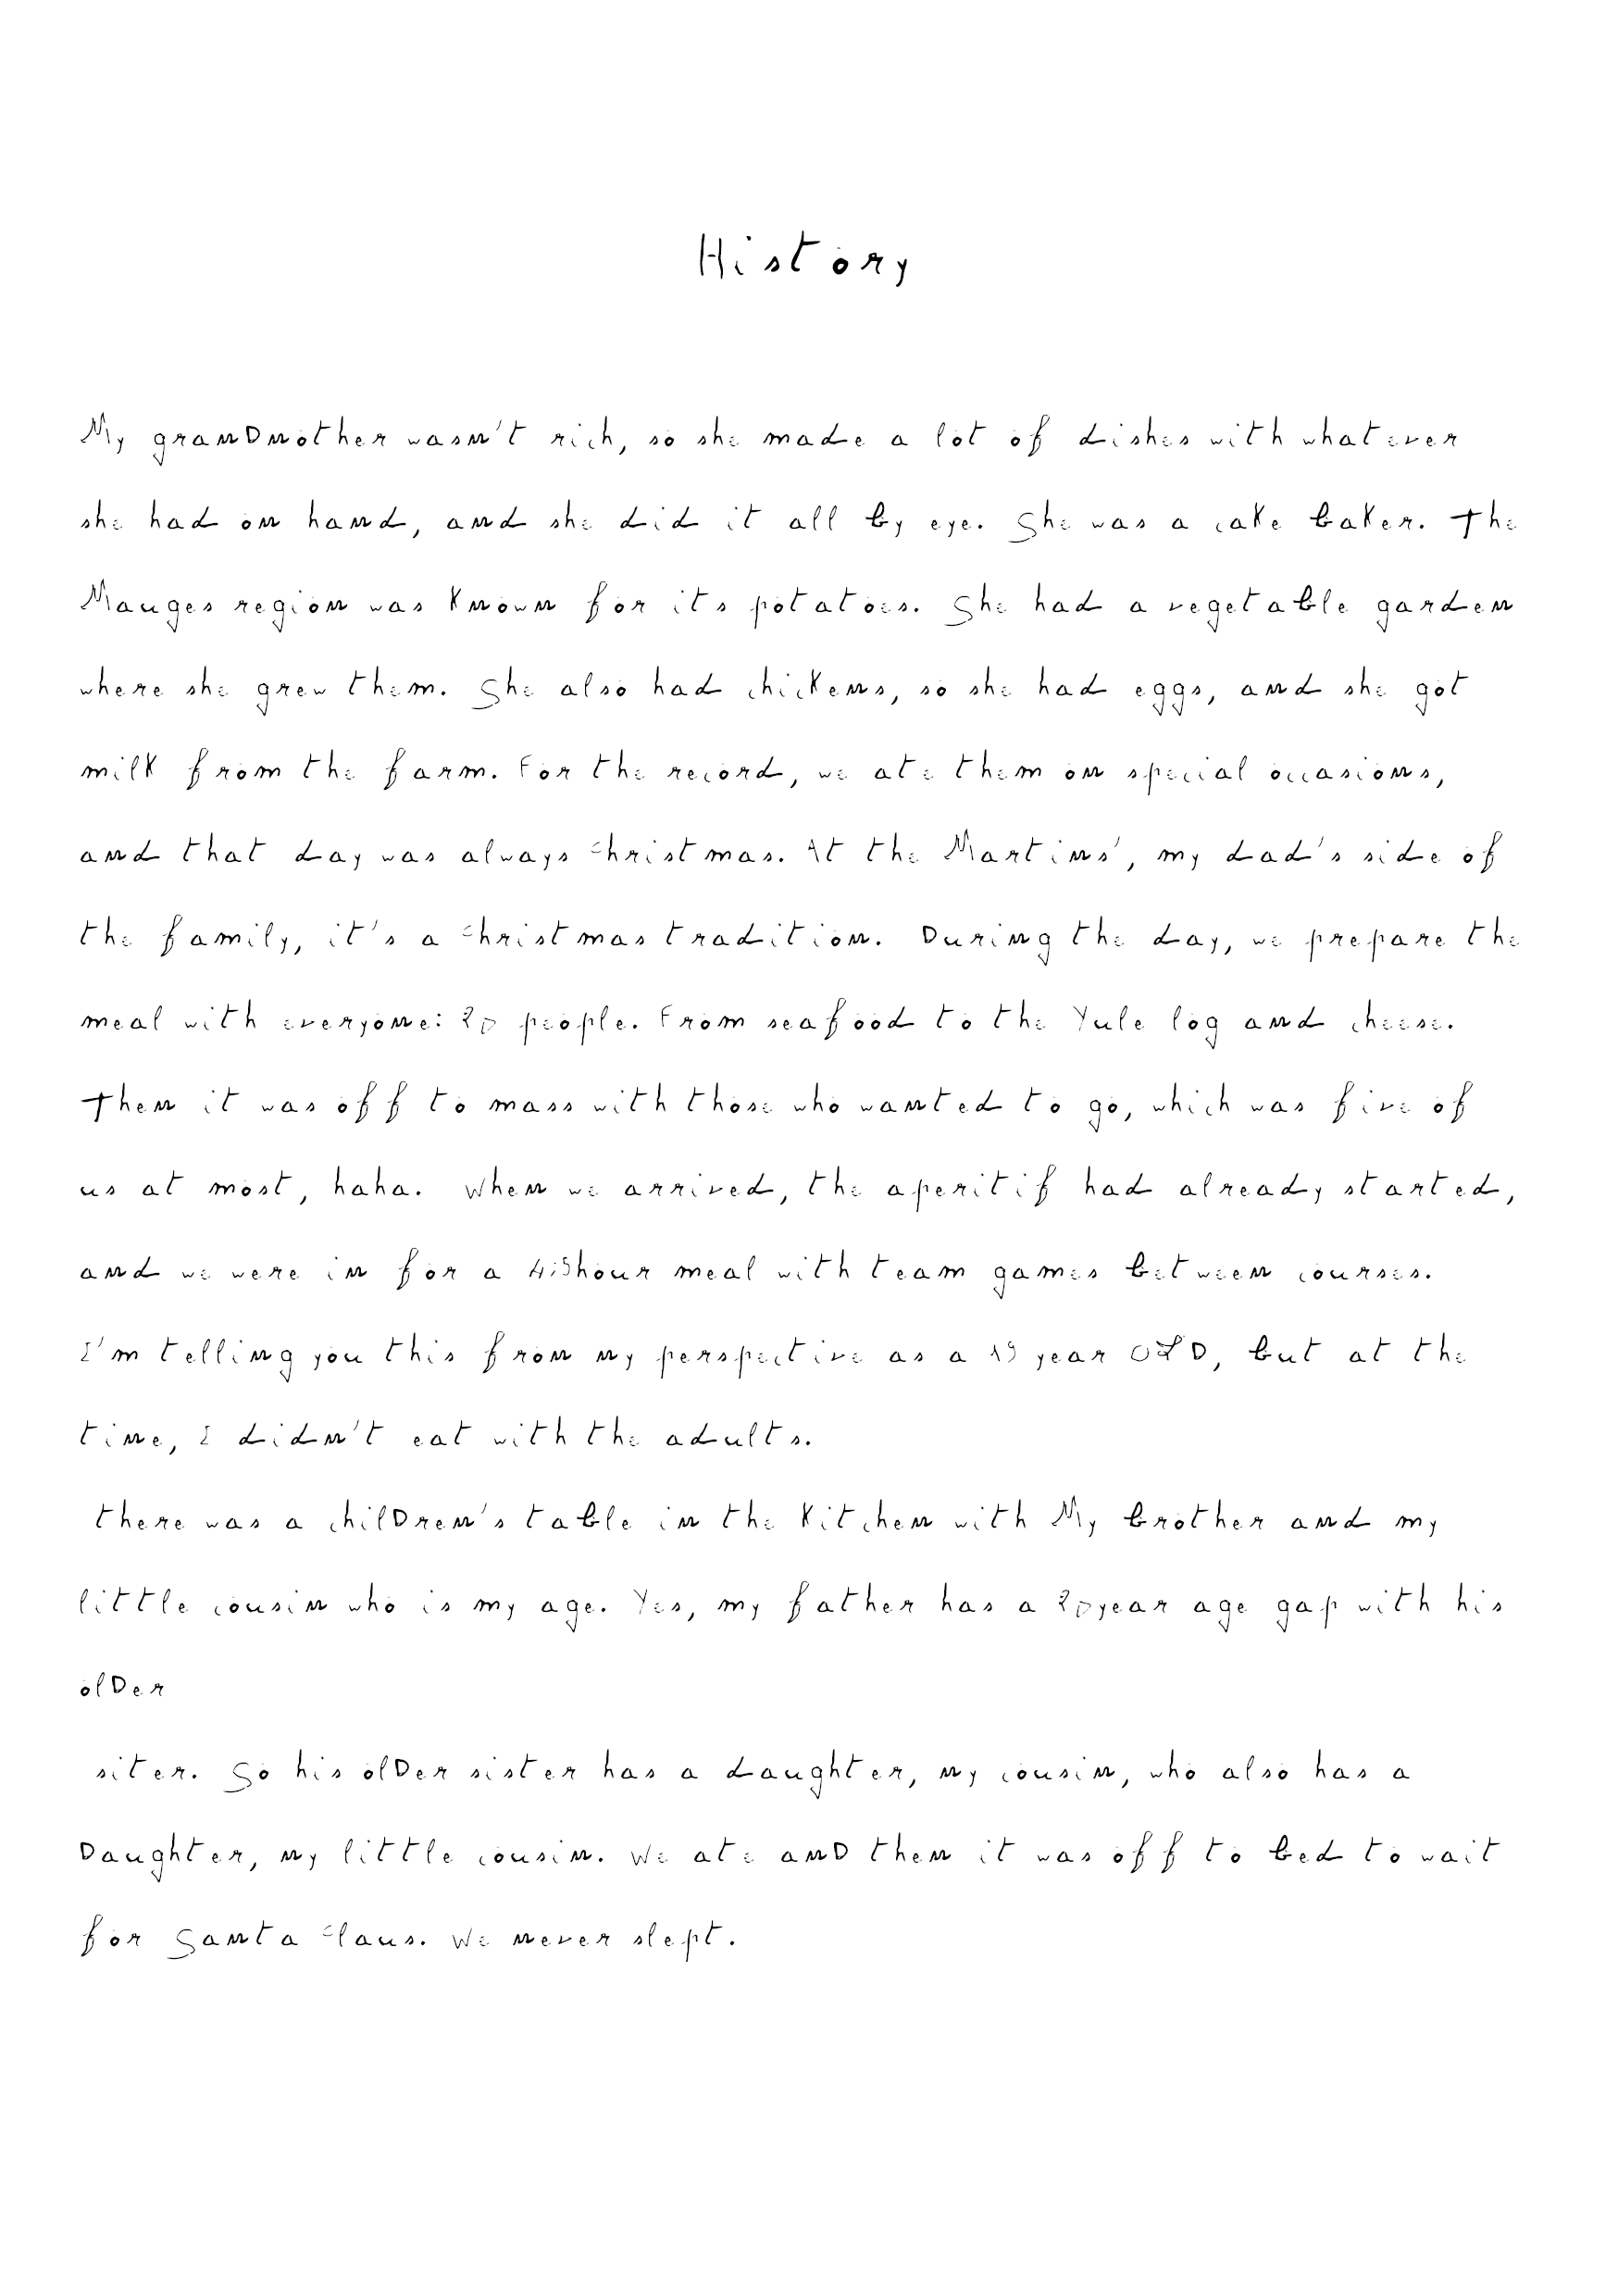 History
My granDmother wasn't rich, so she made a lot of dishes with whatever
she had on hand, and she did it all by eye. She was a cake baker. The
Mauges region was known for its potatoes. She had a vegetable garden
where she grew them. She also had chickens, so she had eggs, and she got
milk from the farm. For the record, we ate them on special occasions,
and that day was always Christmas. At the Martins', my dad's side of
the family, it's a Christmas tradition. During the day, we prepare the
meal with everyone: 20 people. From seafood to the Yule log and cheese.
Then it was off to mass with those who wanted to go, which was five of
us at most, haha. When we arrived, the aperitif had already started,
and we were in for a hour meal with team games between courses.
I'm telling you this from my perspective as a year OLD, but at the
time, I didn't eat with the adults.
there was a chilDren's table in the kitchen with My brother and my
little cousin who is my age. Yes, my father has a 20year age gap with his
olDer
siter. So his olDer sister has a daughter, my cousin, who also has a
Daughter, my little cousin. We ate anD then it was off to bed to wait
for Santa Claus. We never slept.